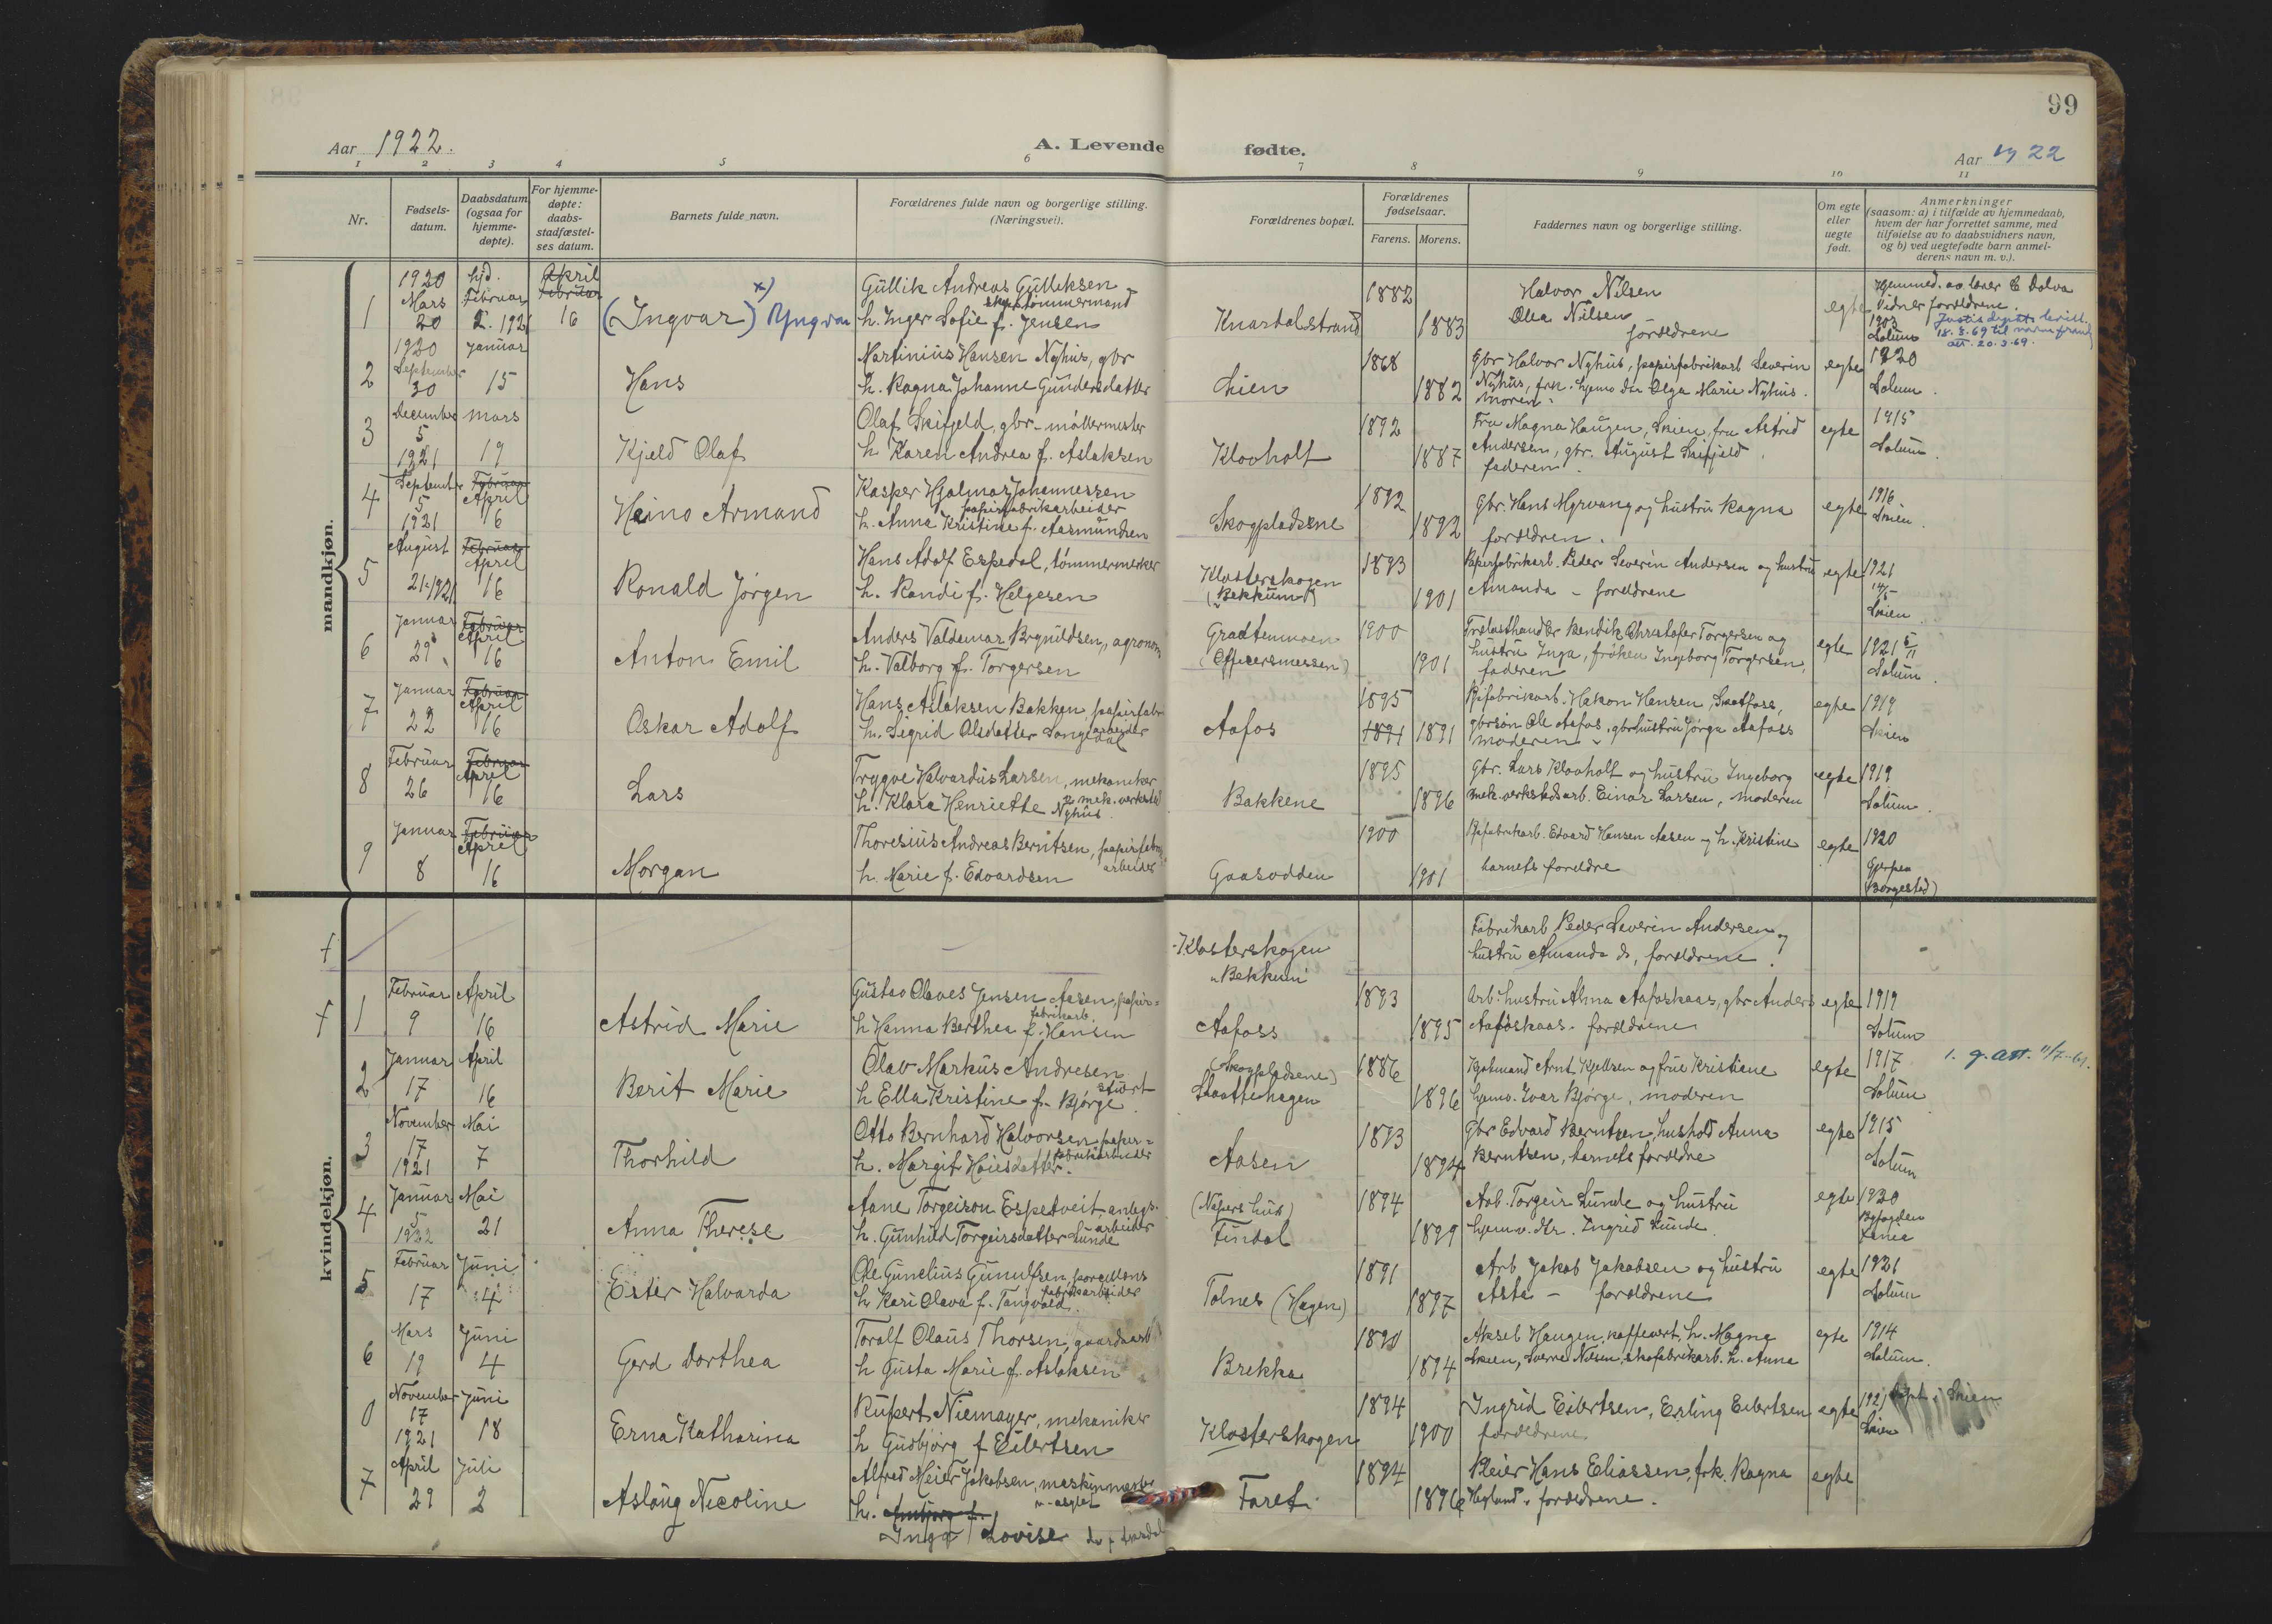 99
Aar 1922.
A. Levende fødte.
Aar 1922
1 2 3 4 5 6 7 8 9 10 11
Nr.
Fødsels-
datum.
Daabsdatum
(ogsaa for
hjemme-
døpte).
For hjemme-
døpte:
daabs-
stadfæstel-
ses datum.
Barnets fulde navn.
Forældrenes fulde navn og borgerlige stilling.
(Næringsvei).
Forældrenes bopæl.
Forældrenes
fødselsaar.
Farens. Morens.
Faddernes navn og borgerlige stilling.
Om egte
eller
uegte
født.
Anmerkninger
(saasom: a) i tilfælde av hjemmedaab,
hvem der har forrettet samme, med
tilføielse av to daabsvidners navn,
og b) ved uegtefødte barn anmel-
derens navn m. v.).
mandkjøn.
1 1920 Mars 20 hjd. Februar 2. 1921 April Februar 16
(Ingvar) x) Yngvar
Gullik Andreas Gulliksen
tømmermand
h. Inger Sofie f. Jensen
Knardalstrand
1882 1883
Halvor Nilsen
Olea Nilsen
forældrene
egte
Hjemmed. av lærer
Vidner forældrene.
1903
Solum
18.8.69 til navneforandr
att. 20.3.69.
2 1920 September 30 Januar 15
Hans
Martinius Hansen Nyhus, gbr
h. Ragna Johanne Gundersdatter
Skien
1868 1882
Gbr Halvor Nyhus, papirfabrikarb Severin
Nyhus, frk. hjemv. dtr Olga Marie Nyhus.
moren.
egte
1920
Solum.
3 December 5 1921 mars 19
Kjeld Olaf
Olaf Skifjeld, gbr-møllermester
h Karen Andrea f. Aslaksen
Klovholt
1892 1887
Fru Magna Haugen, Skien, fru Astrid
Andersen, gbr. August Skifjeld
faderen.
egte
1915
Solum.
4 September 5 1921 Februar April 16
Heino Armand
Kasper Hjalmar Johannessen
papirfabrikarbeider
h. Anna Kristine f. Aasmundsen
Skogpladsene
1892 1892
Gbr. Hans Myrvang og hustru Ragna
forældren.
egte
1916
Skien.
5 August 21-1921 Februar April 16
Ronald Jørgen
Hans Adolf Espedal, tømmermerker
h. Randi f. Helgesen
Klosterskogen
(Bekkum)
1893 1901
Papirfabrikarb. Peder Severin Andersen og hustru
Amanda - forældrene
egte
1921
14/5
Skien
6 Januar 29 Februar April 16
Anton Emil
Anders Valdemar Brynildsen, agronom
h. Valborg f. Torgersen
Graatenmoen
(Officersmessen)
1900 1901
Trælasthandler Bendik Christofer Torgersen og
hustru Inga, frøken Ingeborg Torgersen,
faderen
egte
1921 5/11
Solum.
7 Januar 22 Februar April 16
Oskar Adolf
Hans Aslaksen Bakken, papirfabr
arbeider
h. Sigrid Olsdatter Langedal
Aafos
1895 1891 1891
Pfabrikarb. Hakon Hansen, Skotfoss,
gbrsøn Ole Aafos, gbrhustru Jørga Aafoss
moderen
egte
1919
Skien
8 Februar 26 Februar April 16
Lars
Trygve Halvardus Larsen, mekaniker
p. mek. verksted
h. Klara Henriette Nyhus.
Bakkene
1895 1896
Gbr. Lars Klovholt og hustru Ingeborg
mek. verkstedsarb. Einar Larsen, moderen
egte
1919
Solum.
9 Januar 8 Februar April 16
Morgan
Thoresius Andreas Berntsen, papirfabr
arbeider
h. Marie f. Edvardsen
Gaasodden
1900 1901
Pfabrikarb. Edvard Hansen Aasen og h. Kristine
barnets foreldre
egte
1920
Gjerpen
(Borgestad)
kvindekjøn.
Klosterskogen
"Bekkum"
Fabrikarb Peder Severin Andersen og
hustru Amanda ds, forældrene.
1 Februar 9 April 16
Astrid Marie
Gustav Olaves Jensen Aasen, papir-
fabrikarb.
h Hanna Berthea f. Hansen
Aafoss
1893 1895
Arb. hustru Alma Aafoskaas, gbr Anders
Aafoskaas - forældrene
egte
1919
Solum
2 Januar 17 April 16
Berit Marie
Olav Markus Andresen
stuert
h Ella Kristine f. Bjørge.
(Skogpladsene)
Slaattehagen
1886 1896
Kjøbmand Arnt Kjellsen og frue Kristiane
hjemv. Ivar Bjørge, moderen
egte
1917
Solum
1. g. att. 11/7-61.
3 November 17 1921 Mai 7
Thorhild
Otto Bernhard Halvorsen, papir-
fabrikarbeider
h. Margit Høiesdatter.
Aasen
1893 1894
Gbr Edvard Berntsen, hushold Anna
Berntsen, barnets forældre
egte
1915
Solum
4 Januar 5 1922 Mai 21
Anna Therese
Aane Torgeirson Espetveit anlegs-
arbeider
h. Gunhild Torgeirsdatter Lunde
(Nepers hus)
Findal
1894 1899
Arb. Torgeir Lunde og hustru
hjemv. dtr. Ingrid Lunde
egte
1920
Byfogden
5 Februar 17 Juni 4
Ester Halvarda
Ole Gunelius Gunulfsen, porcellæns
fabrikarbeider
h Kari Olava f. Tangvald.
Tolnes (Hagen)
1891 1897
Arb Jakob Jakobsen og hustru
Asta - forældrene
egte
1921
Solum
6 Mars 19 Juni 4
Gerd Dorthea
Toralf Olaus Thorsen, gaardsarb
h Gusta Marie f. Aslaksen
Brekka
1890 1894
Aksel Haugen, kaffevert, h. Magna
Skien, Sverre Nilsen, skofabrikarb. h. Anna
egte
1914
Solum.
0 November 17 1921 Juni 18
Erna Katharina
Rupert Niemayer, mekaniker
h Gudbjørg f Eilertsen
Klosterskogen
1894 1900
Ingrid Eilertsen, Erling Eilertsen
forældrene
egte
1921 døpt i Skien
Skien
7 April 29 Juli 2
Aslaug Nicoline
Alfred Meier Jakobsen, maskinmester
h.
Inga Lovise
Faret.
1894 1896
Pleier Hans Eliassen, frk. Ragna
Hegland, forældrene.
egte